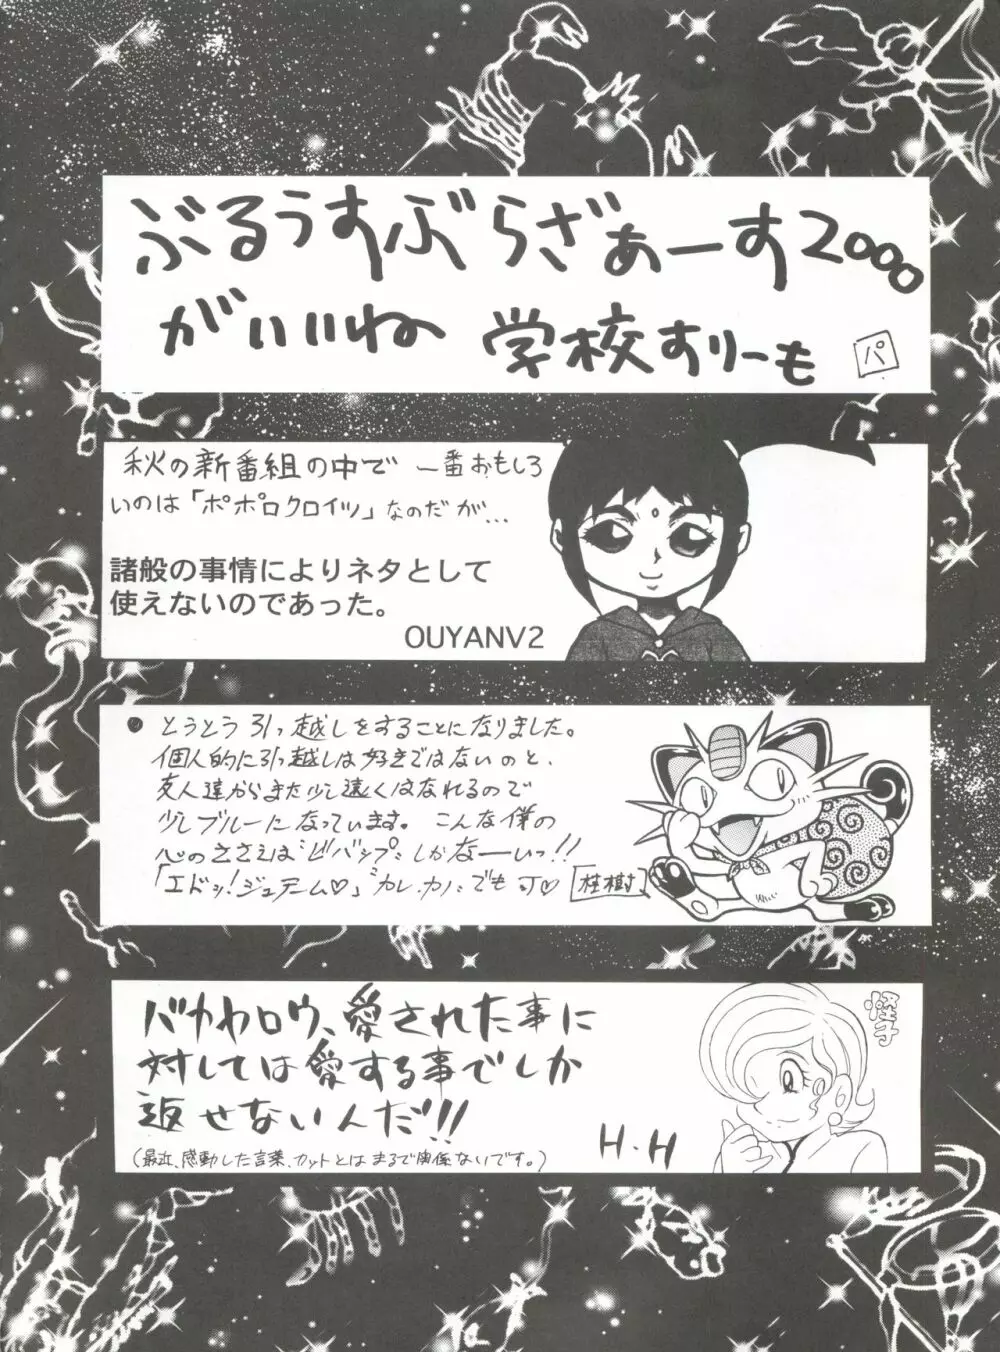 ぶるうすぶらざぁーす2000
がいいね 学校すりーも
パ
秋の新番組の中で 一番おもしろ
いのは「ポポロクロイツ」なのだが…
諸般の事情によりネタとして
使えないのであった。
OUYANV2
●とうとう引っ越しをすることになりました。
個人的に引っ越しは好きではないのと、
友人達からまた少し遠くはなれるので
少しブルーになっています。こんな僕の
心のささえは"ビバップ"しかなーいっ!!
「エドッ!ジュテーム♡」"カレカノ"でも可♡ [桂樹]
怪子
バカヤロウ、愛された事に
対しては愛する事でしか
返せないんだ!!
H.H
(最近、感動した言葉、カットとはまるで関係ないです。)